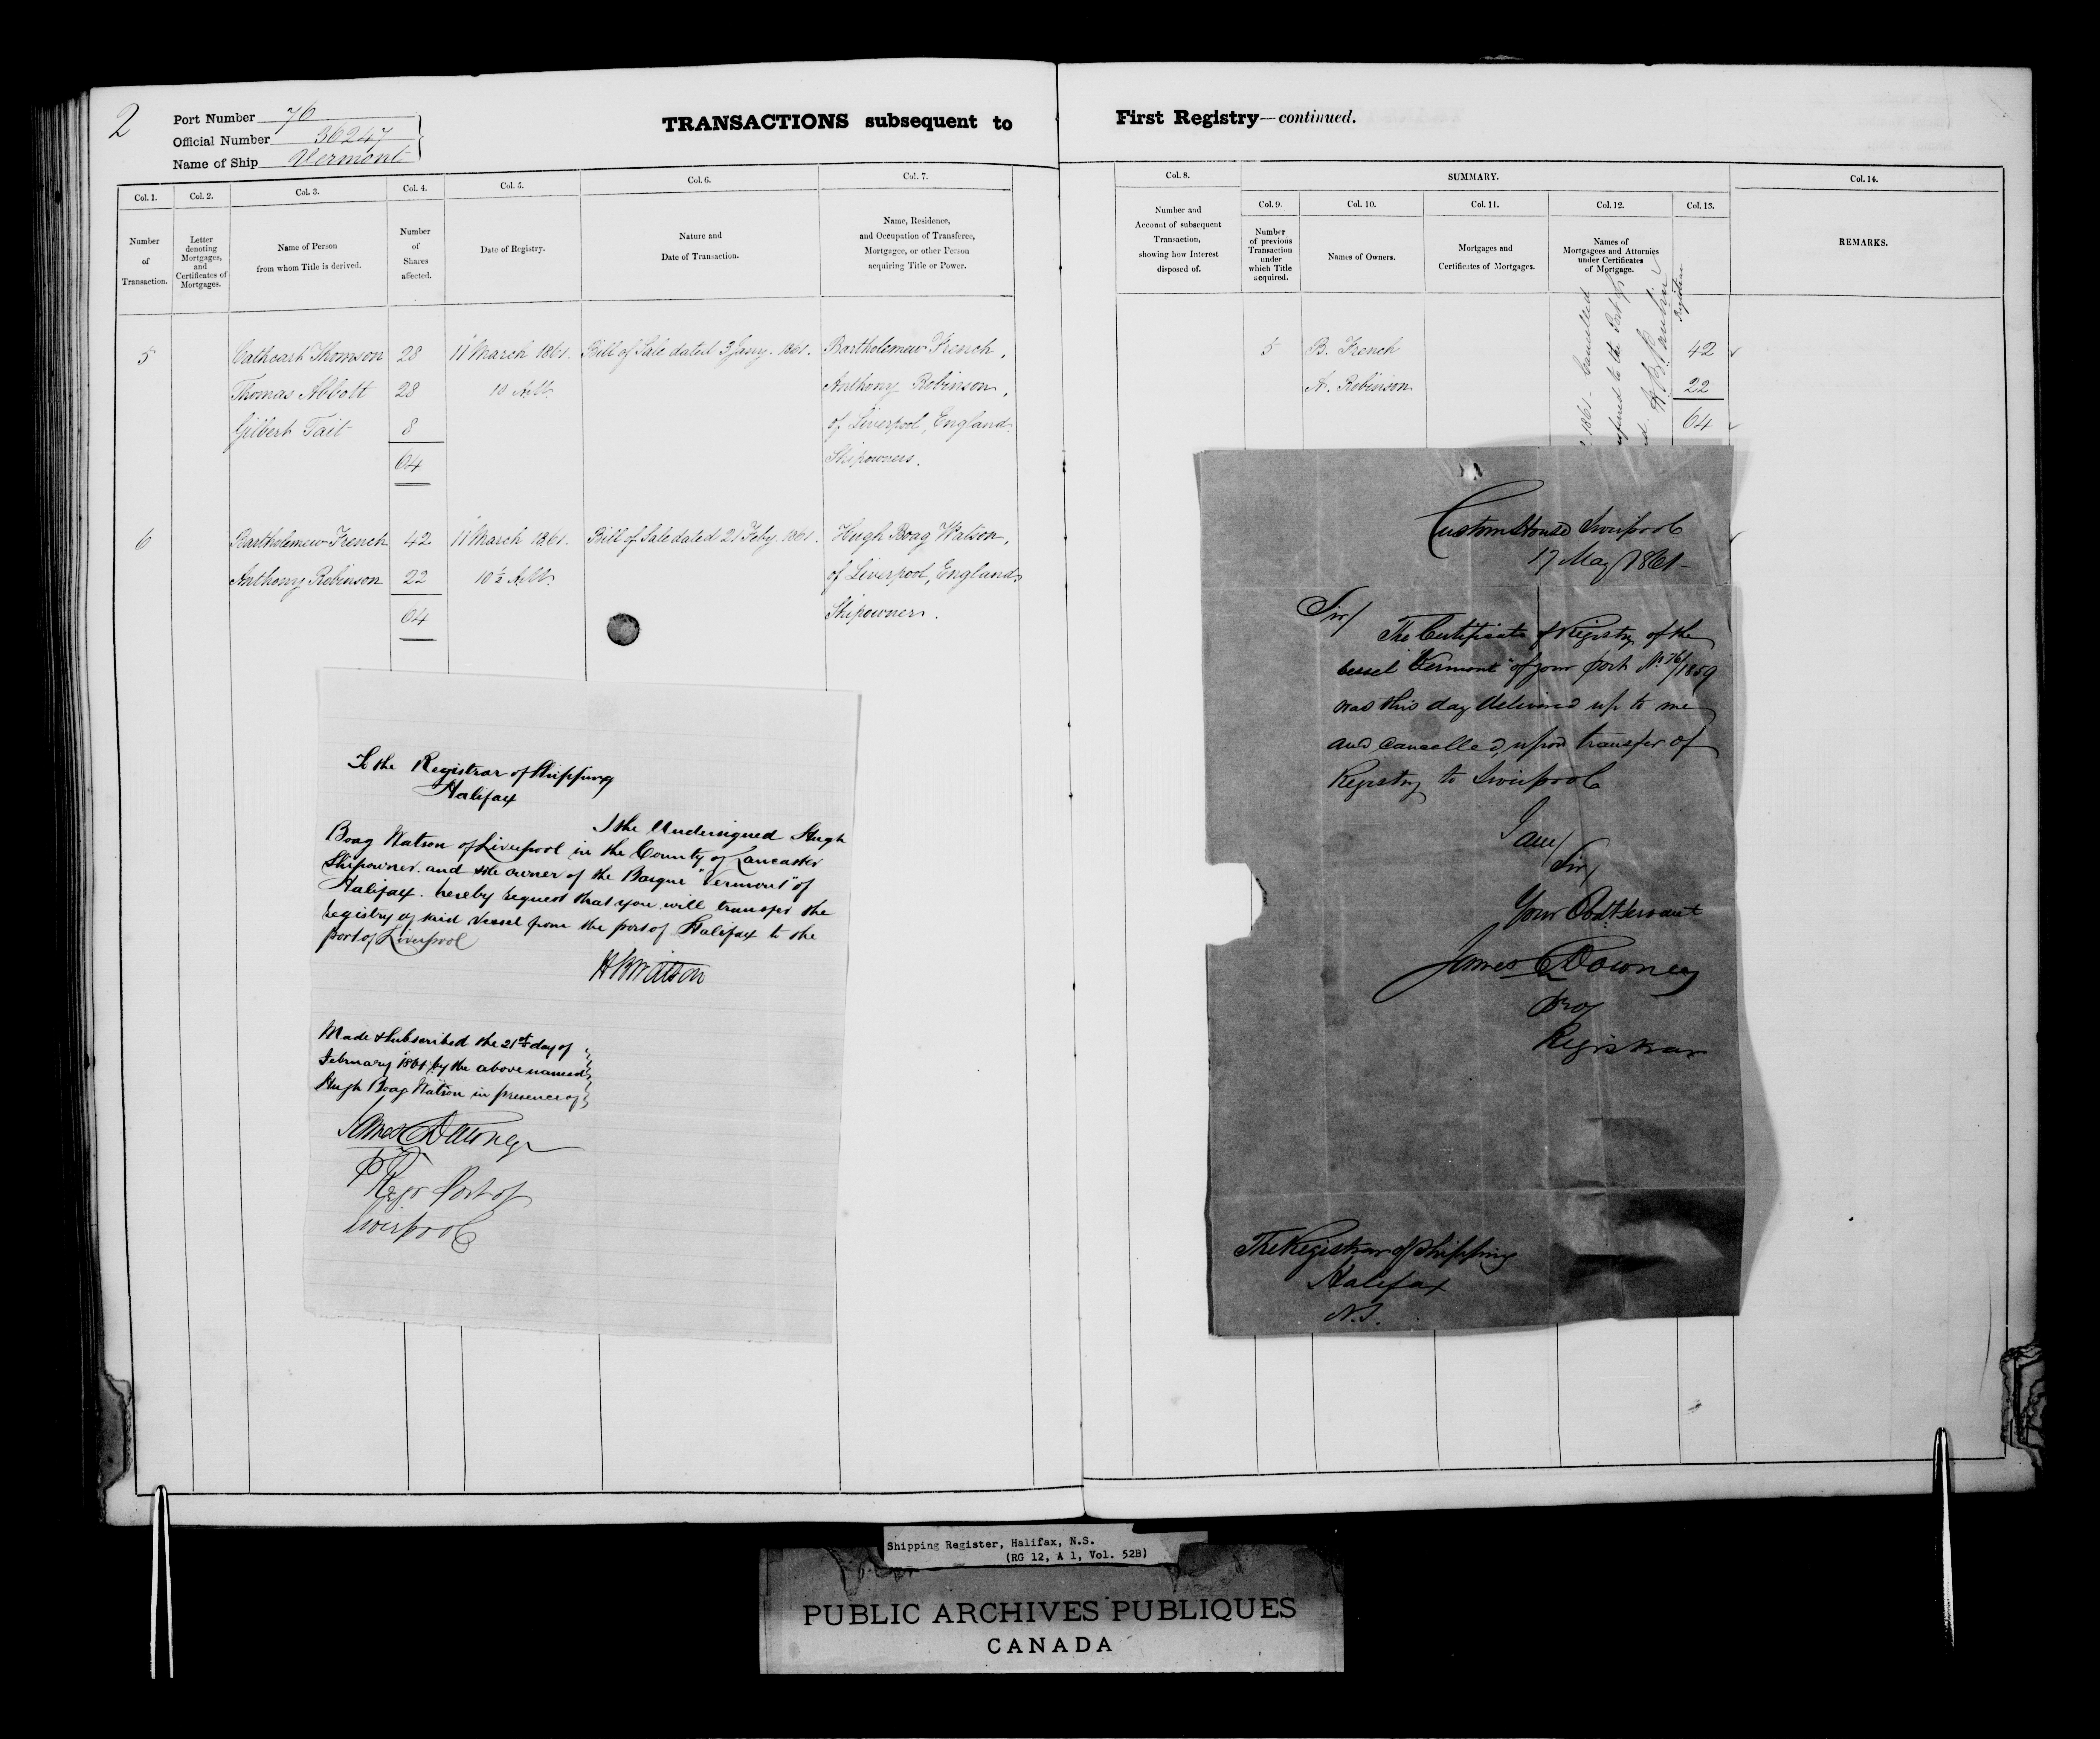 2
Port Number 76
Official Number 36247
Name of Ship Vermont
TRANSACTIONS subsequent to
Col. 1.
Col. 2.
Col. 3.
Col. 4.
Col. 5.
Col. 6.
Col. 7.
Number
of
Transaction.
Letter
denoting
Mortgages,
and
Certificates of
Mortgages.
Name of Person
from whom Title is derived.
Number
of
Shares
affected.
Date of Registry.
Nature and
Date of Transaction.
Name, Residence,
and Occupation of Transferee,
Mortgagee, or other Person
acquiring Title or Power.
5 Cathcart Thomson 28 11" March 1861. Bill of Sale dated 3 Jany. 1861. Bartholemew French,
Thomas Abbott 28 10 A.M. Anthony Robinson,
Gilbert Tait 8 of Liverpool, England.
64 Shipowners.
6 Bartholemew French 42 11" March 1861. Bill of Sale dated 21 Feby. 1861. Hugh Boag Watson,
Anthony Robinson 22 10 ½ A.M. of Liverpool, England,
64 Shipowner.
To the Registrar of Shipping
Halifax
I the Undersigned Hugh
Boag Watson of Liverpool in the County of Lancaster
Shipowner. and sole owner of the Barque "Vermont" of
Halifax. hereby request that you will transfer the
registry of said Vessel from the port of Halifax to the
port of Liverpool
H B Watson
Made & Subscribed the 21st day of
February 1861 by the above named
Hugh Boag Watson in presence of
James C Downey
Regr Port of
Liverpool
First Registry—continued.
Col. 8.
SUMMARY.
Col. 14.
Col. 9.
Col. 10.
Col. 11.
Col. 12.
Col. 13.
Number and
Account of subsequent
Transaction,
showing how Interest
disposed of.
Number
of previous
Transaction
under
which Title
acquired.
Names of Owners.
Mortgages and
Certificates of Mortgages.
Names of
Mortgagees and Attornies
under Certificates
of Mortgage.
REMARKS.
5 B. French 42
A. Robinson 22
64
1861. Cancelled
to the Port of
Custom House Liverpool
17 May 1861-
Sir/
The Certificate of Registry of the
vessel "Vermont" of your port No. 76/1859
was this day delivered up to me
and cancelled, upon transfer of
Registry to Liverpool
I am/
Sir,
Your Obdt Servant
James C Downey
Pro/
Registrar
The Registrar of Shipping
Halifax
N.S.
Shipping Register, Halifax, N.S.
(RG 12, A 1, Vol. 52B)
PUBLIC ARCHIVES PUBLIQUES
CANADA